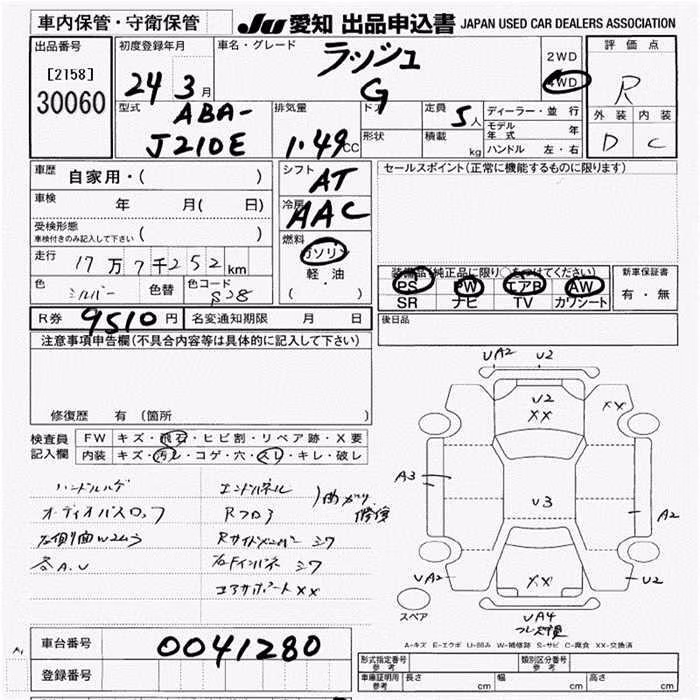 車内保管・守衛保管
JU 愛知 出品申込書 JAPAN USED CAR DEALERS ASSOCIATION
出品番号
[2158]
30060
初度登録年月
24 3月
車名・グレード
ラッシュ
G
2WD
4WD
評価点
R
外装 内装
D C
型式
ABA-
J210E
排気量
1.49CC
ドア
形状
定員
5人
積載
kg
ディーラー・並行
モデル年式 年
ハンドル 左・右
車歴
自家用・( )
車検
年 月( 日)
受検形態
車検付きのみ記入して下さい
( )
走行
17万7千252km
色
シルバー
色替
色コード
S28
シフト
AT
冷房
AAC
燃料
ガソリン
軽・油
( ・ )
セールスポイント(正常に機能するものに限ります)
装備品(純正品に限り○をつけてください)
PS PW エアB AW
SR ナビ TV カワシート
新車保証書
有・無
R券 9510円 名変通知期限 月 日
後日品
注意事項申告欄(不具合内容等は具体的に記入して下さい)
修復歴 有(箇所 )
検査員記入欄
FW キズ・飛石・ヒビ割・リペア跡・X要
内装 キズ・汚レ・コゲ・穴・スレ・キレ・破レ
ハンドルハゲ
オーディオパスロック
左側面W2ムラ
各A.U
エンドパネル
Rフロア
曲がり
修復
Rサイドメンバー シワ
エアサポートXX
UA2 U2
U2
XX
XX
A3
U3
A2
UA2
XX
U2
UA4
スペア
A-キズ E-エクボ U-凹み W-補修跡 S-サビ C-腐食 XX-交換済
車台番号 0041280
登録番号
型式指定番号 参考
類別区分番号 参考
車庫証明用 参考
長さ cm 幅 cm 高さ cm